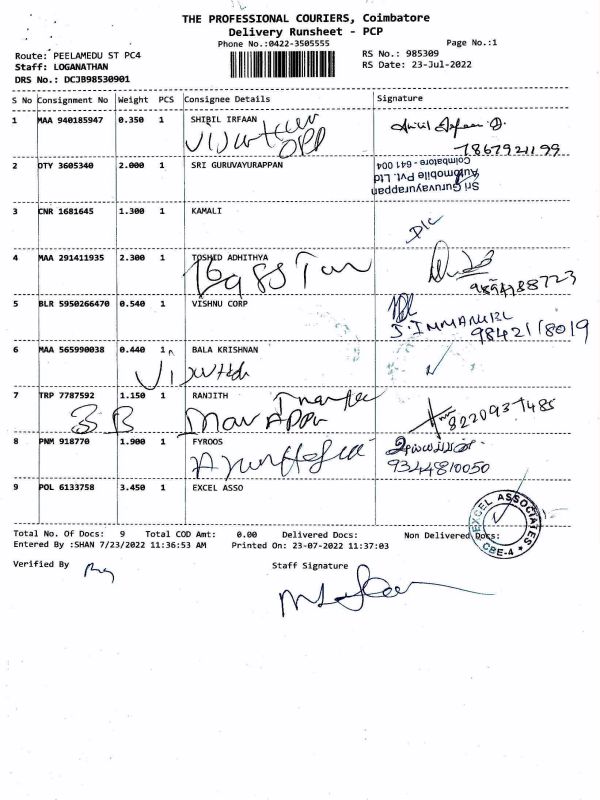 THE PROFESSIONAL COURIERS, Coimbatore
Delivery Runsheet - PCP
Phone No.:0422-3505555
Page No.:1
Route: PEELAMEDU ST PC4
RS No.: 985309
Staff: LOGANATHAN
RS Date: 23-Jul-2022
DRS No.: DCJB98530901
S No Consignment No Weight PCS Consignee Details Signature
1 MAA 940185947 0.350 1 SHIBIL IRFAAN
OPP
7867921199
2 DTY 3605340 2.000 1 SRI GURUVAYURAPPAN
Sri Guruvayurappan
Automobile Pvt. Ltd
Coimbatore - 641 004
3 CNR 1681645 1.300 1 KAMALI
D/C
4 MAA 291411935 2.300 1 TOSHED ADHITHYA
5 BLR 5950266470 0.540 1 VISHNU CORP
J. IMMANUEL
9842118019
6 MAA 565990038 0.440 1 BALA KRISHNAN
7 TRP 7787592 1.150 1 RANJITH
3 B
8220937485
8 PNM 918770 1.900 1 FYROOS
9344810050
9 POL 6133758 3.450 1 EXCEL ASSO
EXCEL ASSOCIATES
CBE-4
Total No. Of Docs: 9 Total COD Amt: 0.00 Delivered Docs: Non Delivered Docs:
Entered By :SHAN 7/23/2022 11:36:53 AM Printed On: 23-07-2022 11:37:03
Verified By
Staff Signature